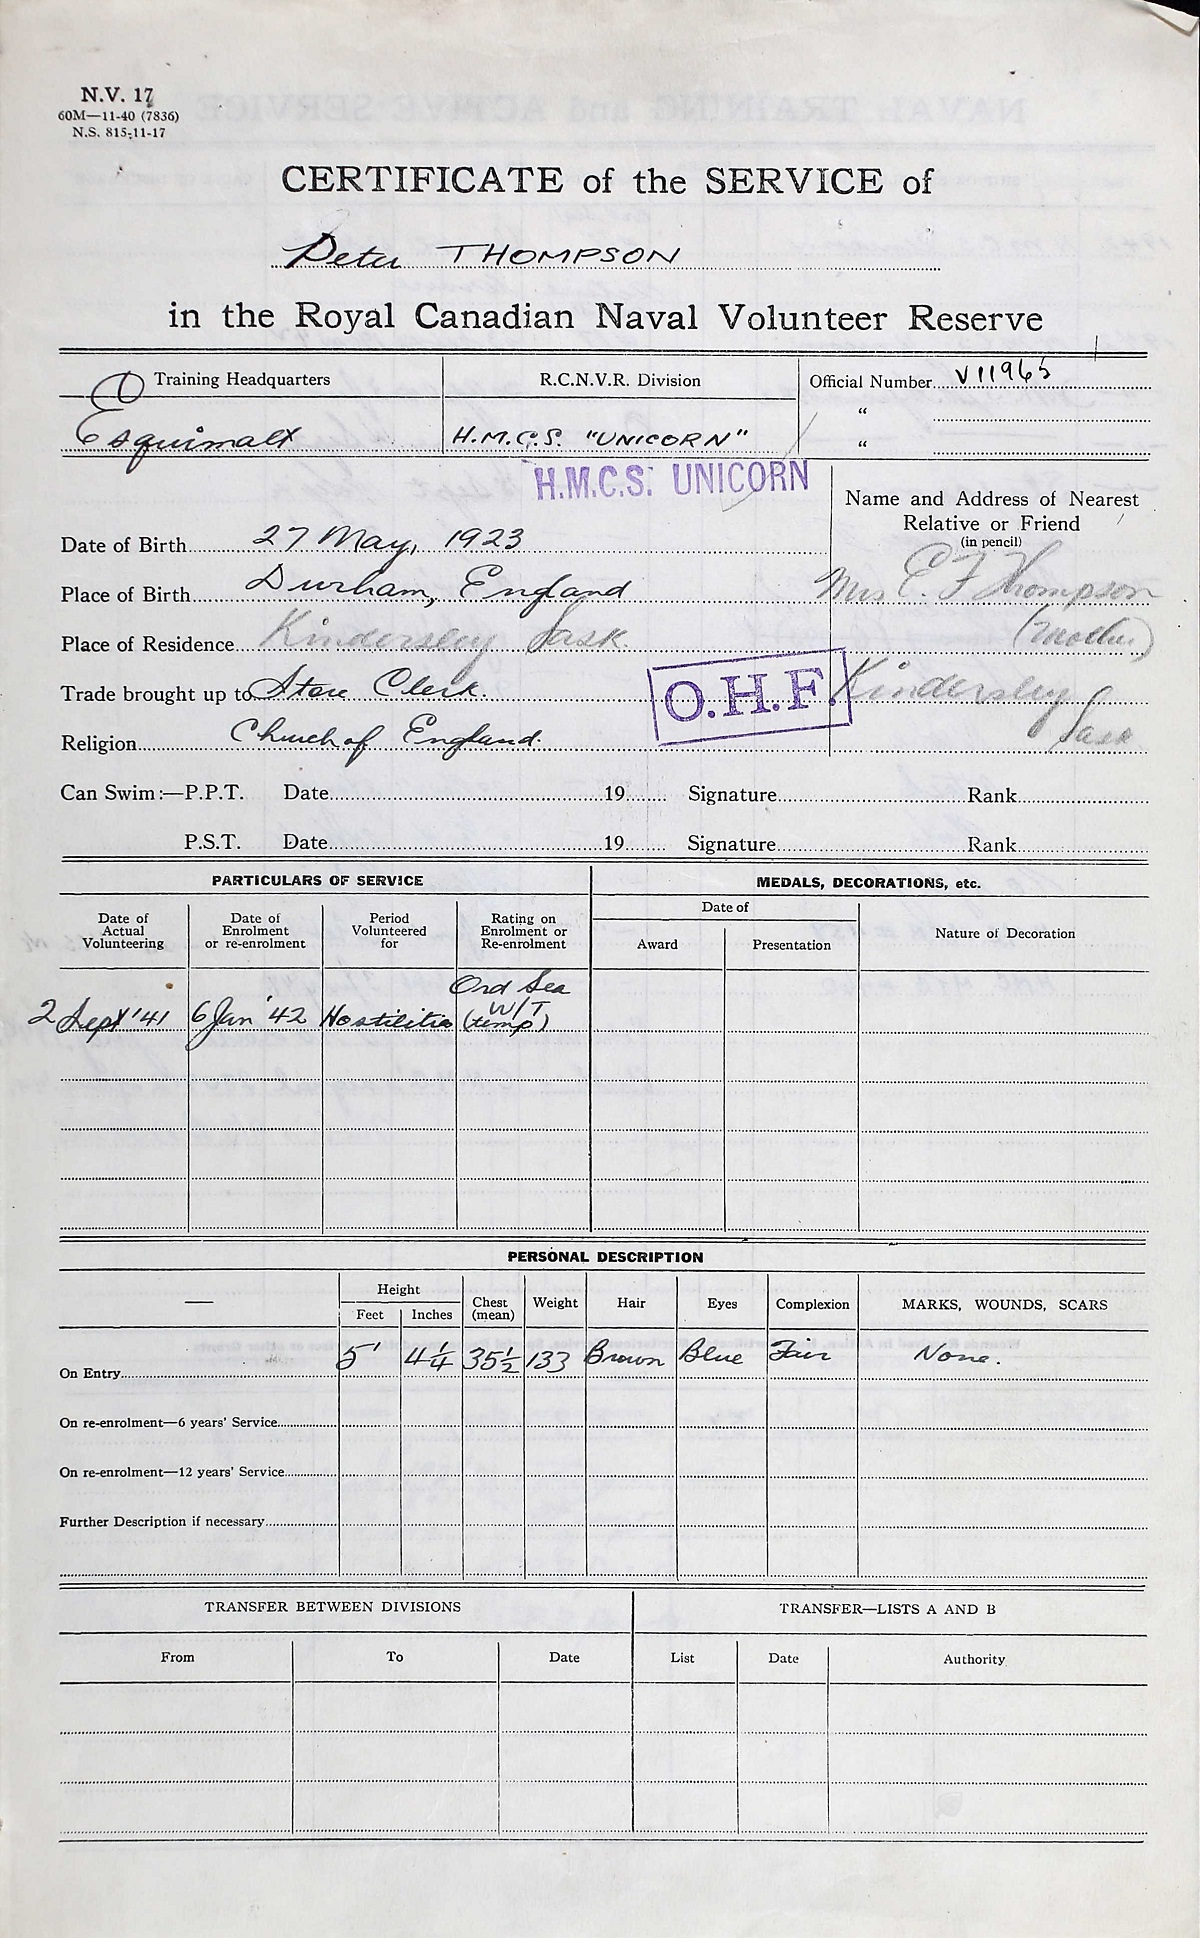 N.V. 17
60M—11-40 (7836)
N.S. 815-11-17
CERTIFICATE of the SERVICE of
Peter THOMPSON
in the Royal Canadian Naval Volunteer Reserve
Training Headquarters R.C.N.V.R. Division Official Number V11965
"
Esquimalt H.M.C.S. "UNICORN" "
H.M.C.S. UNICORN
Name and Address of Nearest
Relative or Friend
(in pencil)
Date of Birth 27 May, 1923
Place of Birth Durham, England Mrs E. F Thompson
Place of Residence Kindersley Sask. (Mother)
Trade brought up to Store Clerk. O.H.F. Kindersley
Religion Church of England. Sask
Can Swim:—P.P.T. Date 19 Signature Rank
P.S.T. Date 19 Signature Rank
PARTICULARS OF SERVICE MEDALS, DECORATIONS, etc.
Date of Actual Volunteering Date of Enrolment or re-enrolment Period Volunteered for Rating on Enrolment or Re-enrolment Date of Award Presentation Nature of Decoration
2 Sept '41 6 Jan '42 Hostilities Ord Sea W/T (temp)
PERSONAL DESCRIPTION
— Height Feet Inches Chest (mean) Weight Hair Eyes Complexion MARKS, WOUNDS, SCARS
On Entry 5' 4¼ 35½ 133 Brown Blue Fair None.
On re-enrolment—6 years' Service
On re-enrolment—12 years' Service
Further Description if necessary
TRANSFER BETWEEN DIVISIONS TRANSFER—LISTS A AND B
From To Date List Date Authority